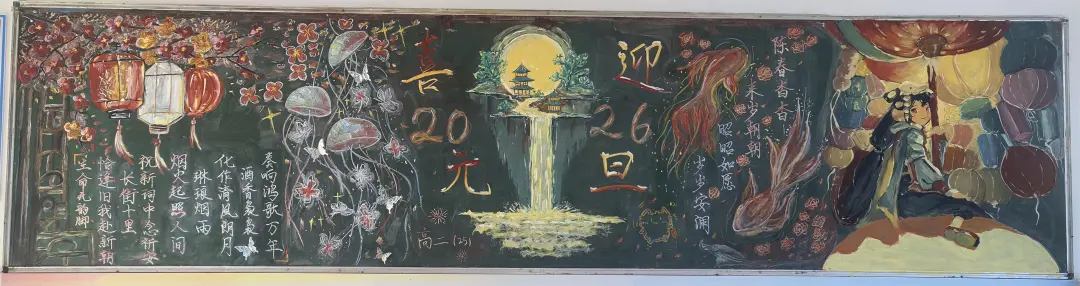 喜迎
2026
元旦
奏响鸿歌万年
酒香袅袅
化作清风朗月
琳琅烟雨
烟火起照人间
祝新词中念祈安
长街十里
恰逢旧我赴新朝
陈春杳杳
来岁朝朝
昭昭如愿
岁岁安澜
高二(25)